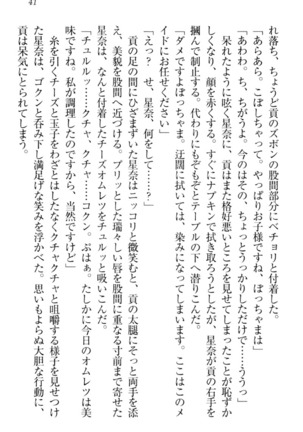 41
れ落ち、ちょうど貢のズボンの股間部分にベチョリと付着した。
「あらあら。こぼしちゃって。やっぱりお子様ですね、ぼっちゃまは」
「あわわ。ち、ちがうよ。今のはその、ちょっとうっかりしただけで……ううっ」
呆れたように呟く星奈に、貢はまた格好悪いところを見せてしまったことが恥ずか
しくなり、顔を赤くする。すぐにナプキンで拭き取ろうとしたが、星奈が貢の右手を
摑んで制止する。代わりにもぞもぞとテーブルの下へ潜りこんだ。
「ダメですよぼっちゃま。迂闊に拭いては、染みになってしまいます。ここはこのメ
イドにお任せください」
「えっ？　せ、星奈、何をして……？」
貢の足の間にひざまずいた星奈はニッコリと微笑むと、貢の太腿にそっと両手を添
え、美貌を股間へ近づける。プリッとした瑞々しい唇を股間に重なる寸前まで寄せた
星奈は、なんと付着したチーズオムレツをチュルッと吸いこんだ。
「チュルルッ……クチャ、クチャ……コクン。ぷはぁ。たしかに今日のオムレツは美
味ですね。私が調理したのですから、当然ですけど」
糸を引くチーズと玉子をわざとはしたなくクチャクチャと咀嚼する様子を見せつけ
た星奈は、ゴクンと呑み下し満足げな笑みを浮かべた。思いもよらぬ大胆な行動に、
貢は呆気にとられてしまう。